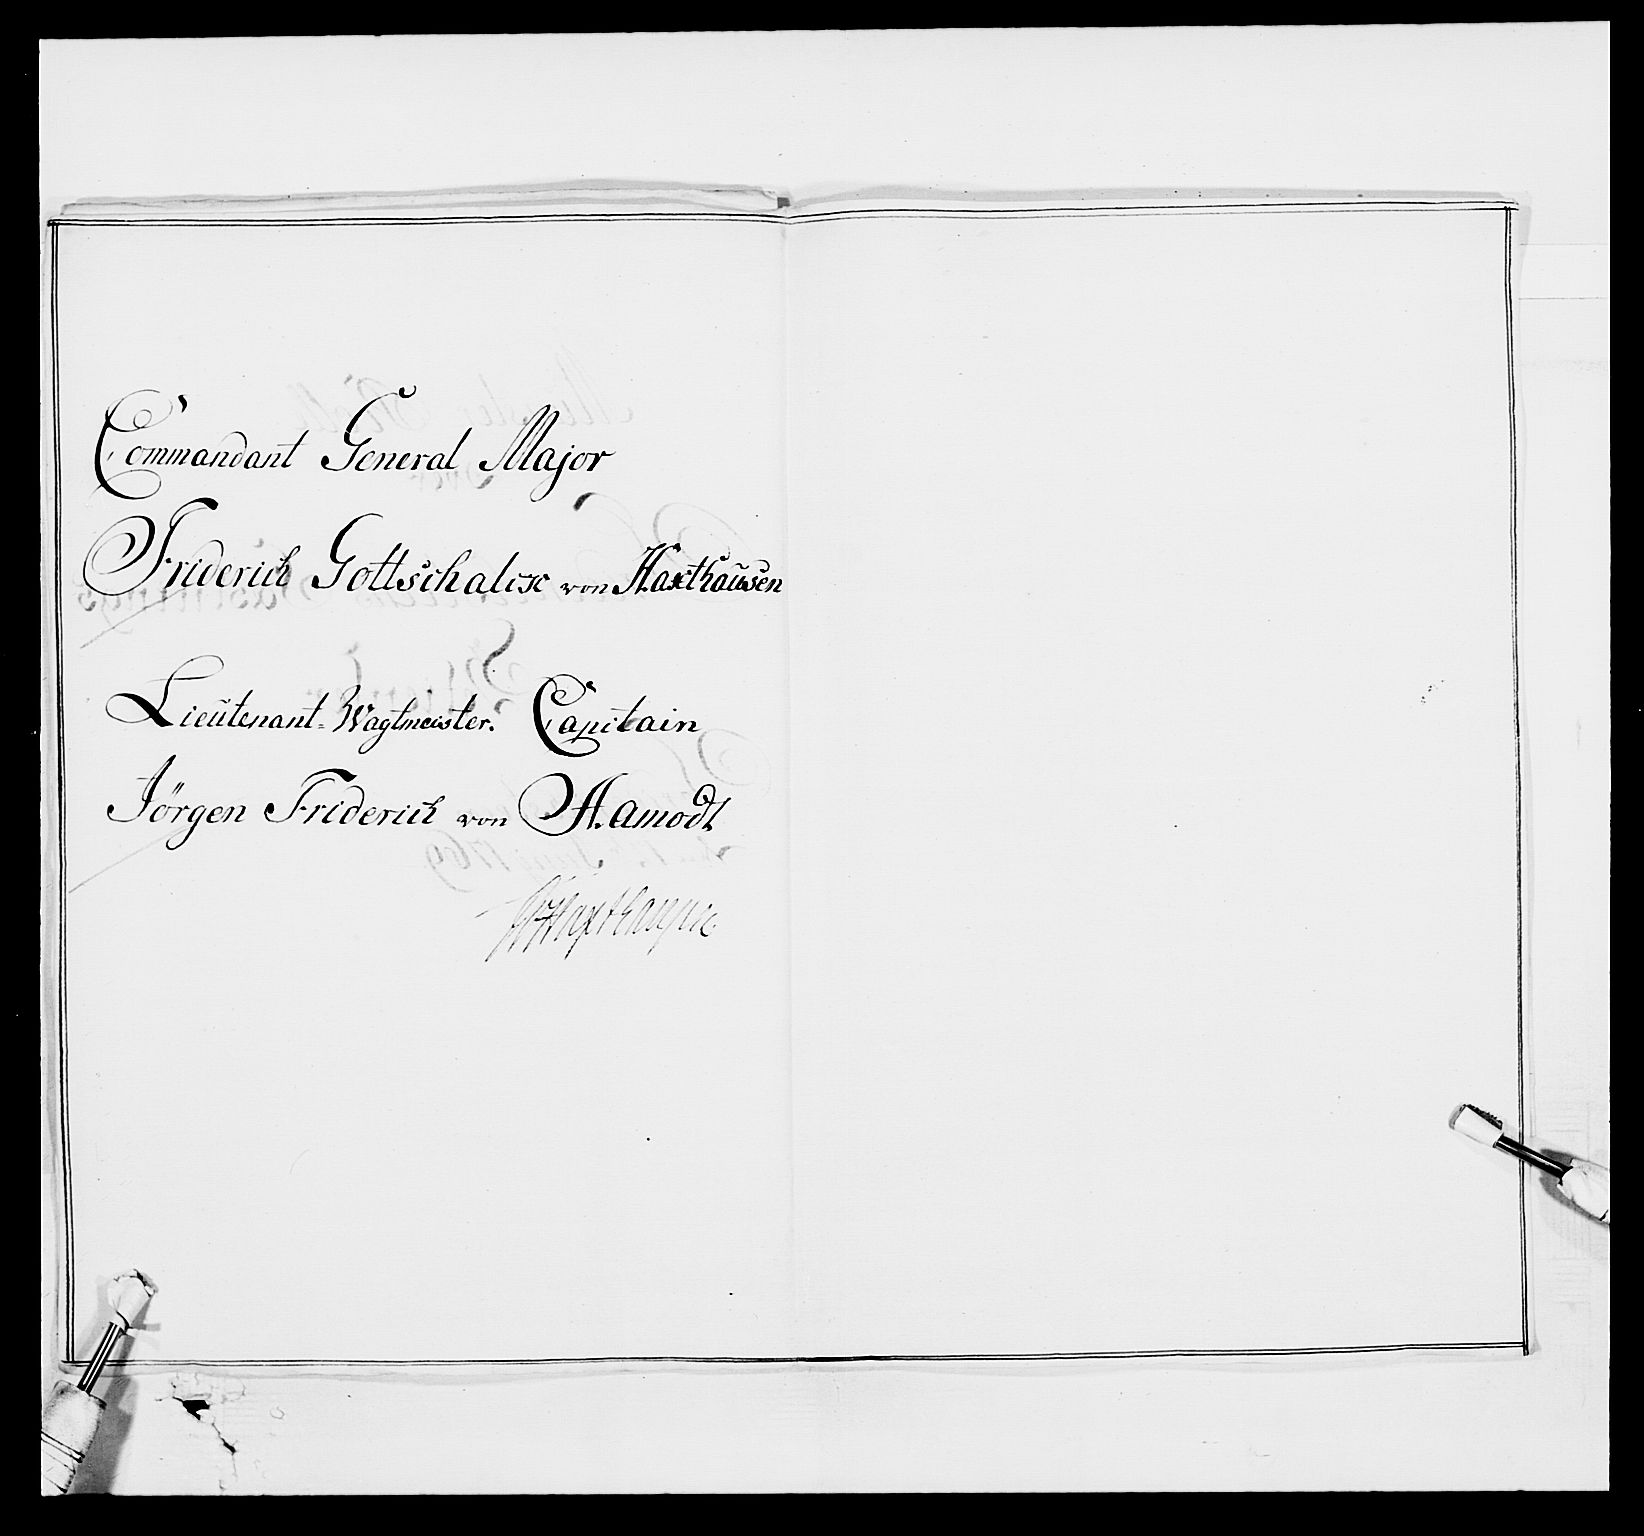 Commandant General Major
Friderich Gottschalck von Haxthaüsen
Lieütenant-Wagtmeister. Capitain
Jörgen Friderich von Hamodt
Haxthausen